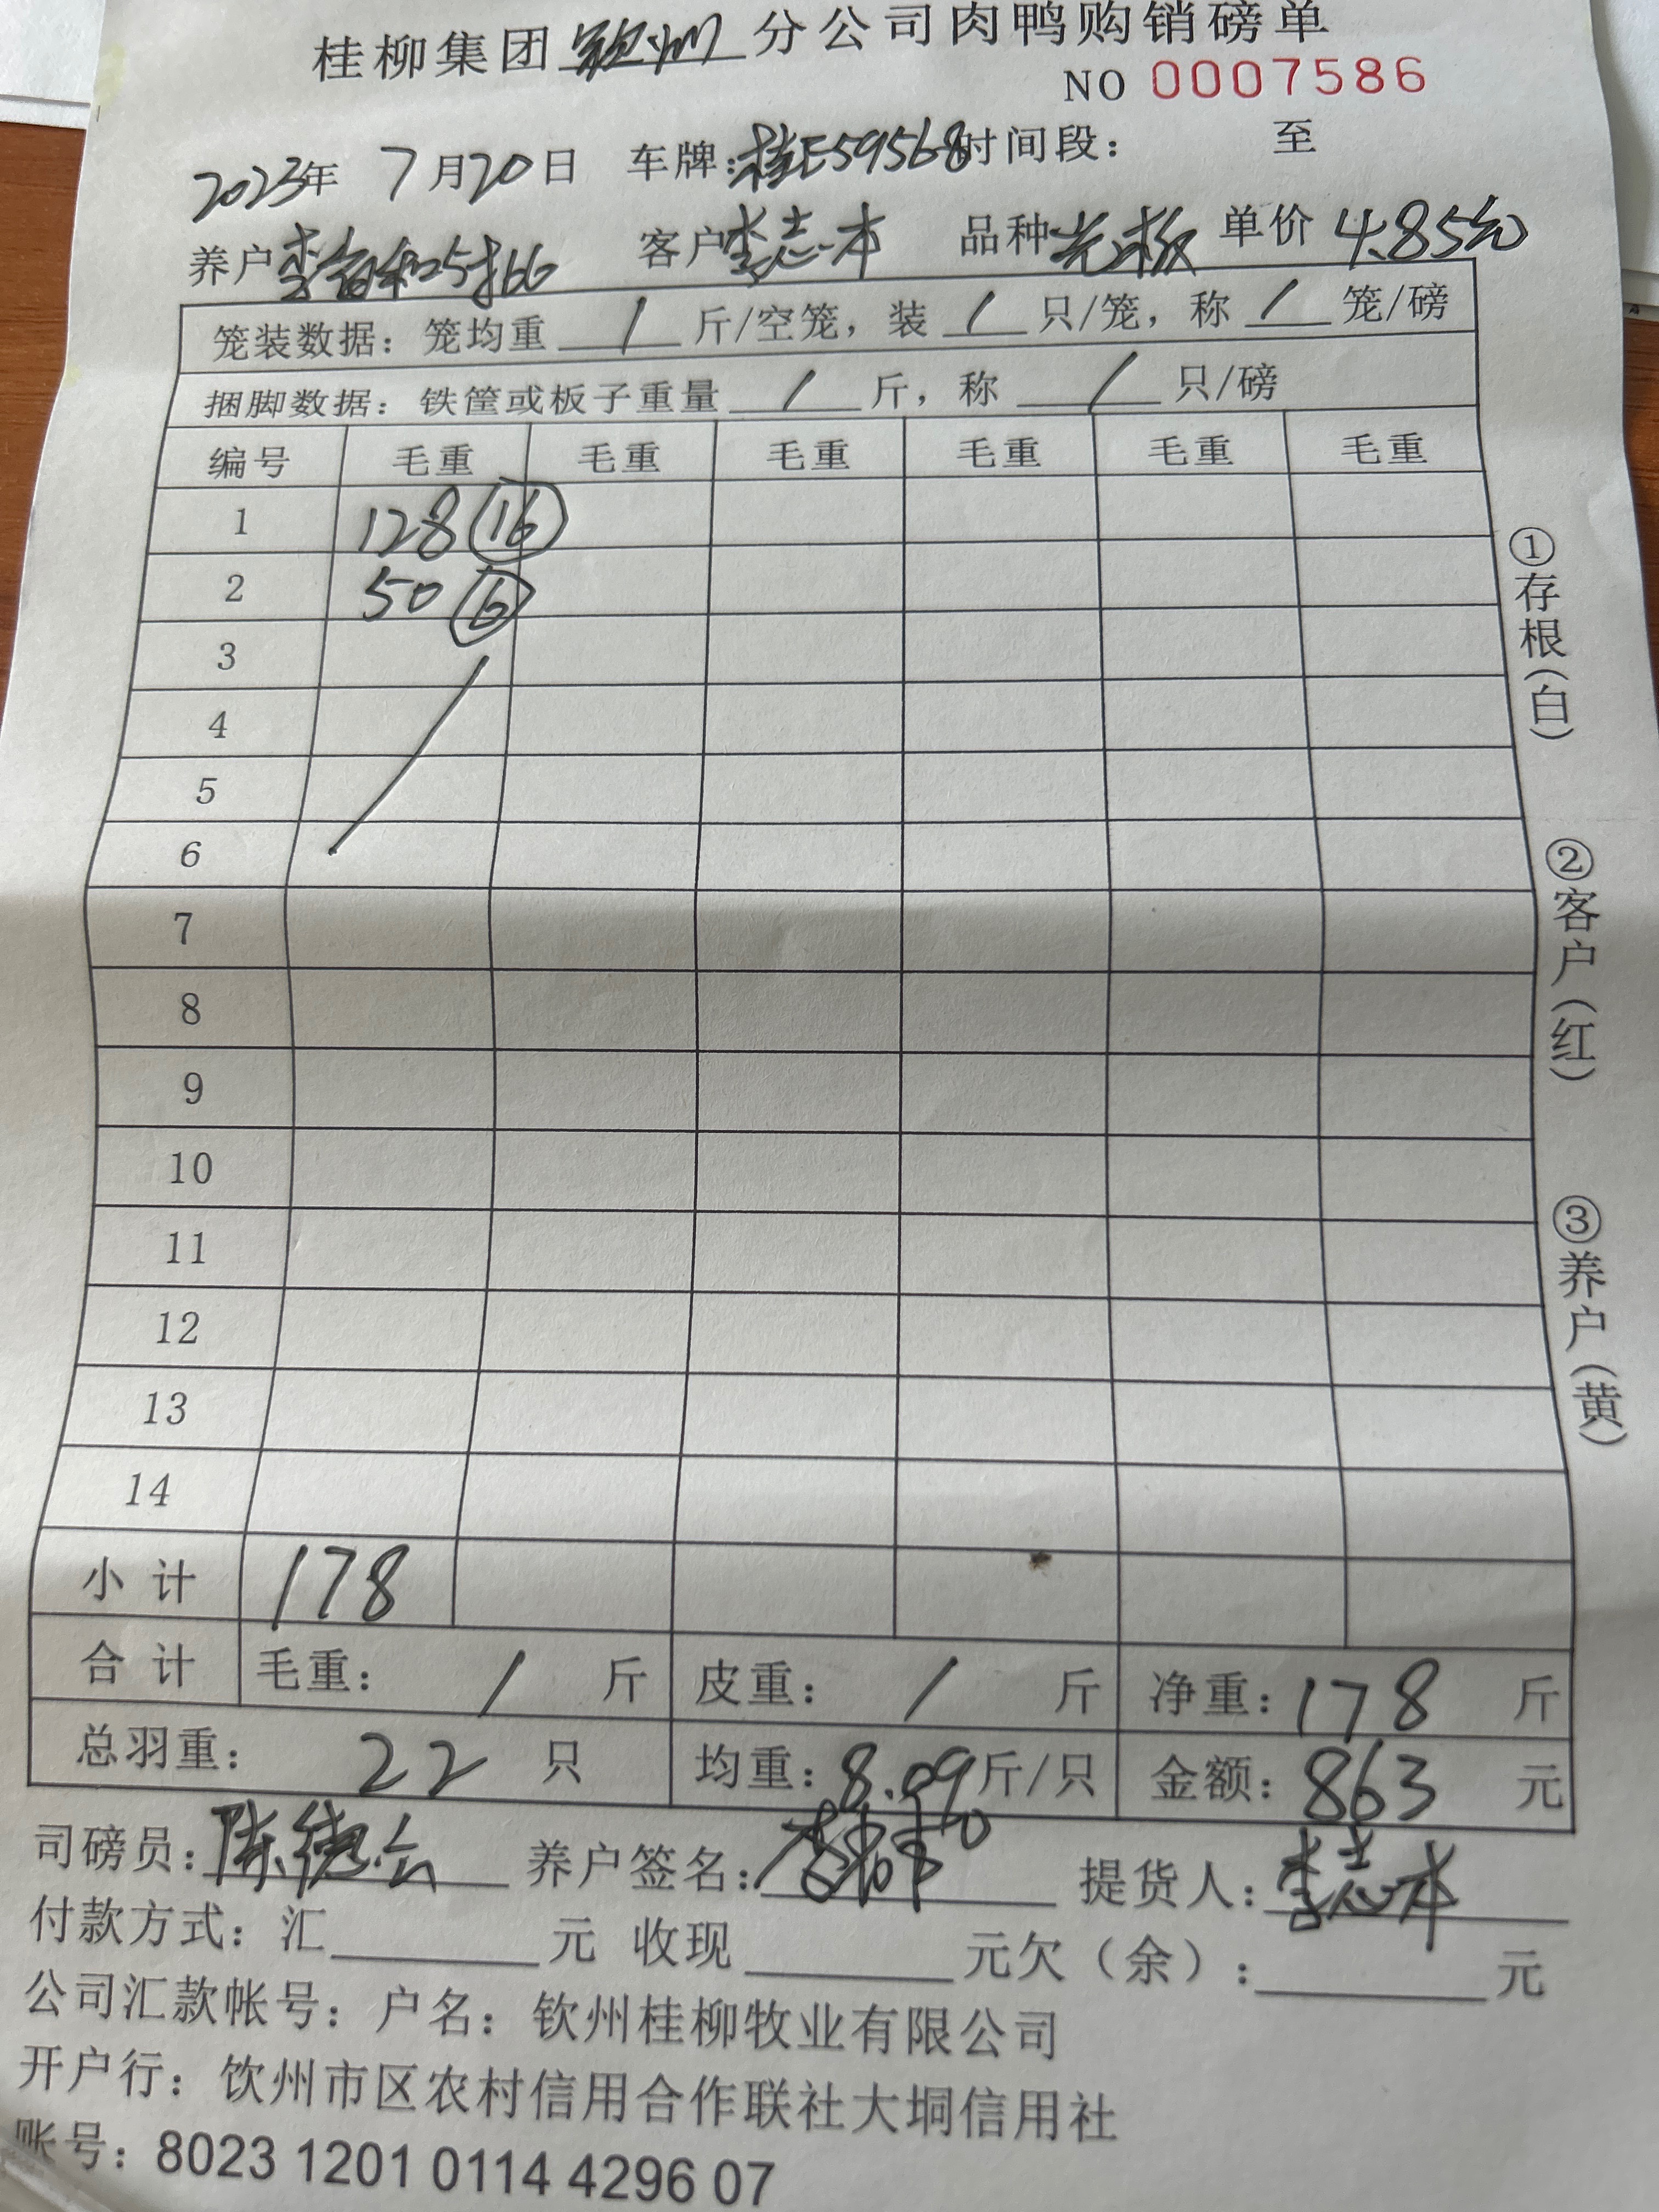 桂柳集团钦州分公司肉鸭购销磅单
NO 0007586
2023年 7月20日 车牌:桂E59568时间段： 至
养户 客户李志本 品种光板 单价 4.85元
笼装数据：笼均重 / 斤/空笼，装 / 只/笼，称 / 笼/磅
捆脚数据：铁筐或板子重量 / 斤，称 / 只/磅
编号 毛重 毛重 毛重 毛重 毛重 毛重
1 128 16
2 50 6
3
4
5
6
7
8
9
10
11
12
13
14
小计 178
合计 毛重： / 斤 皮重： / 斤 净重：178 斤
总羽重： 22 只 均重：8.09斤/只 金额：863 元
司磅员： 养户签名： 提货人：李志本
付款方式：汇 元 收现 元欠（余）： 元
公司汇款帐号：户名：钦州桂柳牧业有限公司
开户行：钦州市区农村信用合作联社大垌信用社
账号：8023 1201 0114 4296 07
①存根（白）
②客户（红）
③养户（黄）